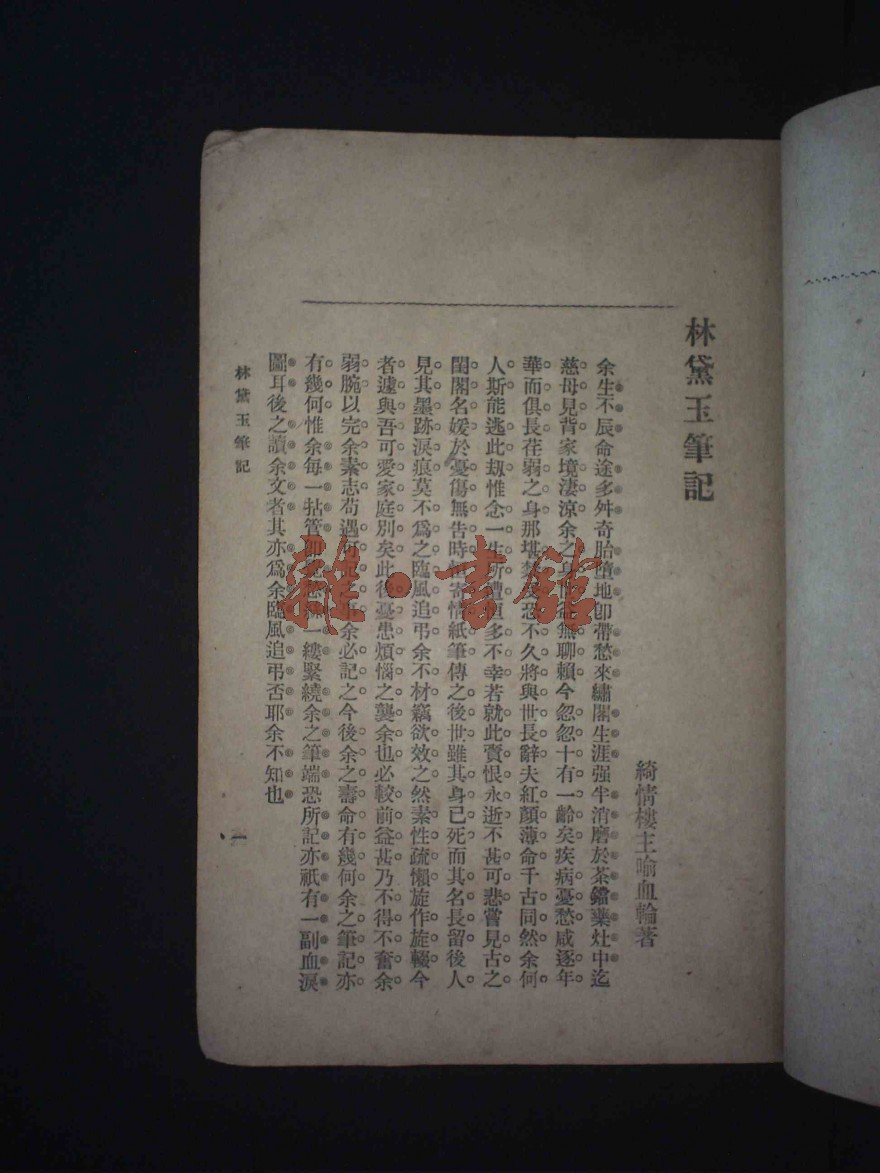 林黛玉筆記
綺情樓主喻血輪著
余生不辰命途多舛奇胎墮地卽帶愁來繡閣生涯强半消磨於茶鐺藥灶中迄
慈母見背家境淒涼余之身世益無聊賴今忽忽十有一齡矣疾病憂愁咸逐年
華而俱長荏弱之身那堪禁受恐不久將與世長辭夫紅顏薄命千古同然余何
人斯能逃此劫惟念一生所遭恒多不幸若就此賫恨永逝不甚可悲嘗見古之
閨閣名媛於憂傷無告時輒寄情紙筆傳之後世雖其身已死而其名長留後人
見其墨跡淚痕莫不爲之臨風追弔余不材竊欲效之然素性疏懶旋作旋輟今
者遽與吾可愛家庭別矣此後憂患煩惱之襲余也必較前益甚乃不得不奮余
弱腕以完余素志苟遇可記之事余必記之今後余之壽命有幾何余之筆記亦
有幾何惟余每一拈管卽覺愁絲一縷緊繞余之筆端恐所記亦祇有一副血淚
圖耳後之讀余文者其亦爲余臨風追弔否耶余不知也
林黛玉筆記
一
雜·書館